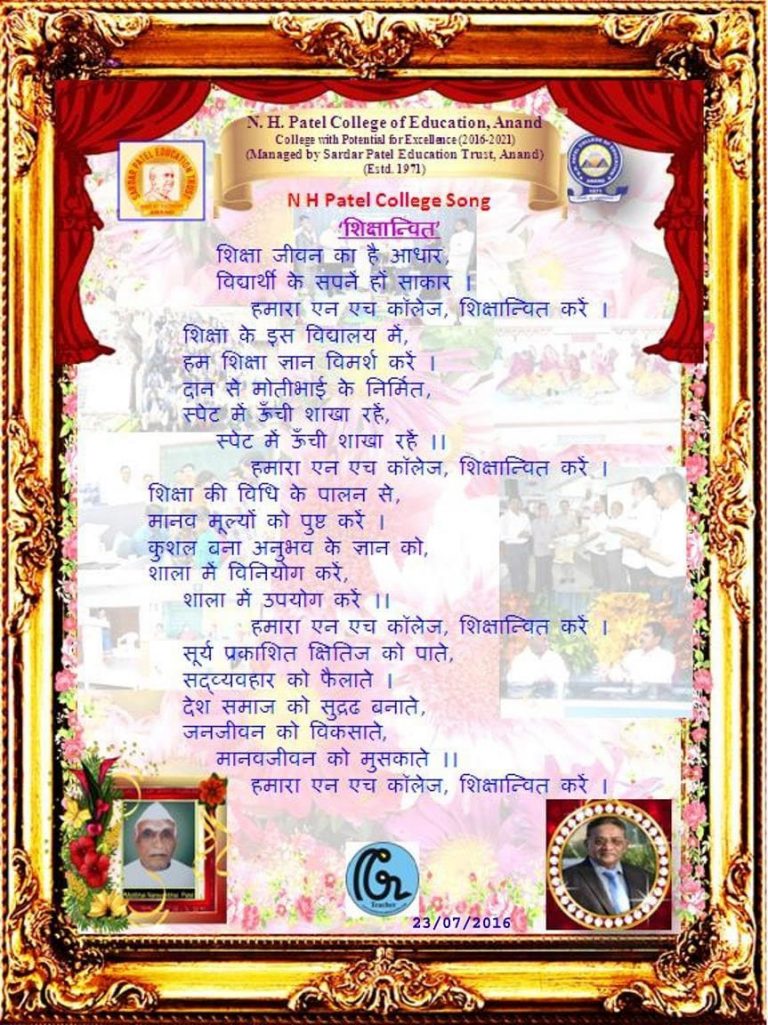 N. H. Patel College of Education, Anand
College with Potential for Excellence (2016-2021)
(Managed by Sardar Patel Education Trust, Anand)
(Estd. 1971)
SARDAR PATEL EDUCATION TRUST
ANAND
N H Patel College Song
‘शिक्षान्वित’
शिक्षा जीवन का है आधार,
विद्यार्थी के सपनें हों साकार ।
हमारा एन एच कॉलेज, शिक्षान्वित करें ।
शिक्षा के इस विद्यालय में,
हम शिक्षा ज्ञान विमर्श करें ।
दान से मोतीभाई के निर्मित,
स्पेट में ऊँची शाखा रहें,
स्पेट में ऊँची शाखा रहें ।।
हमारा एन एच कॉलेज, शिक्षान्वित करें ।
शिक्षा की विधि के पालन से,
मानव मूल्यों को पुष्ट करें ।
कुशल बना अनुभव के ज्ञान को,
शाला में विनियोग करें,
शाला में उपयोग करें ।।
हमारा एन एच कॉलेज, शिक्षान्वित करें ।
सूर्य प्रकाशित क्षितिज को पाते,
सद्व्यवहार को फैलाते ।
देश समाज को सुद्रढ बनाते,
जनजीवन को विकसाते,
मानवजीवन को मुसकाते ।।
हमारा एन एच कॉलेज, शिक्षान्वित करें ।
Teacher
23/07/2016